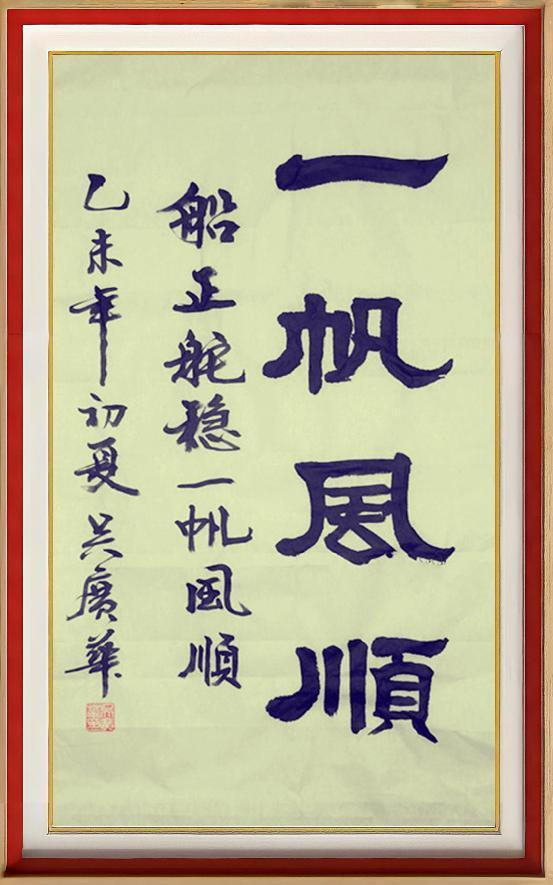 一帆風順
船正舵稳一帆風順
乙未年初夏吴廣華